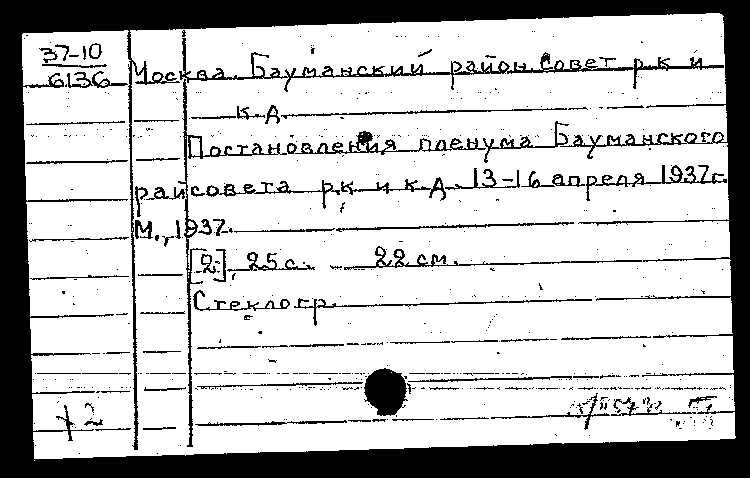 37-10
6136
Москва. Бауманский район. совет р.к и
к.д.
Постановления пленума Бауманского
райсовета р.к и к.д. 13-16 апреля 1937г.
М., 1937.
[2], 25 с. 22 см.
Стеклогр.
+2